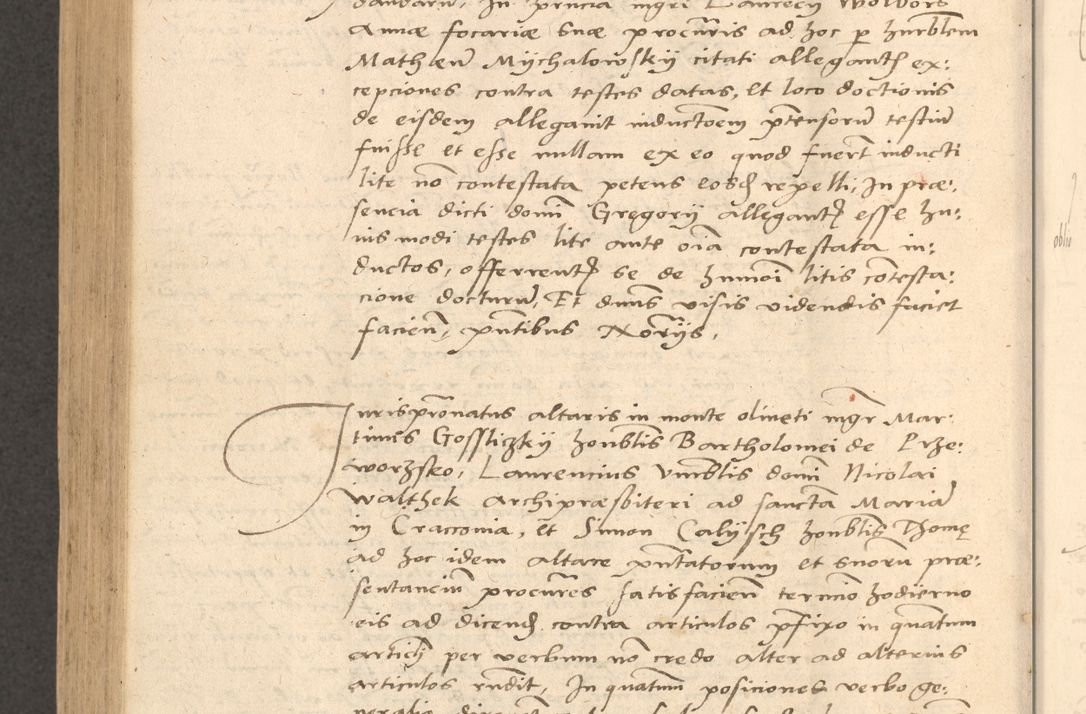 dandarum, In prńcia mgri Laurecy Wolbors
Annæ focariæ suæ procuris ad hoc p hnrblem
Matheu Mychalowsky citati allegantis ex:
cepciones contra testes datas, Et loco doctionis
de eisdem allegavit inductoem ptensorũ testiũ
fuisse et esse nullam ex eo quod fuert inducti
lite nō contestata petens eosd repelli, In præ:
sencia dicti domi Gregory allegantis esse hu:
ius modi testes lite ante oia contestata in:
ductos, offerrentis se de hmoi litis cōtesta:
cione docturũ, Et dnus visis videndis faciet
facien, pntibus Noriis,
Jurisprōnatus altaris in monte oliveti mgr Mar:
tinus Gossliczky honblis Bartholomei de Prze:
worzsko, Laurencius Vnrblis domi Nicolai
Walthek archipræsbiteri ad sancta Mariã
in Cracovia, Et Simon Calysch honblis Thomę
ad hoc idem altare pntatorum et suorũ præ:
sentanciũ procures satisfacien termio hodierno
eis ad dicend contra articulos pfixo in quantum
articli per verbum nō credo alter ad alterius
articulos rndit, In quatum posiciones verbo ge: